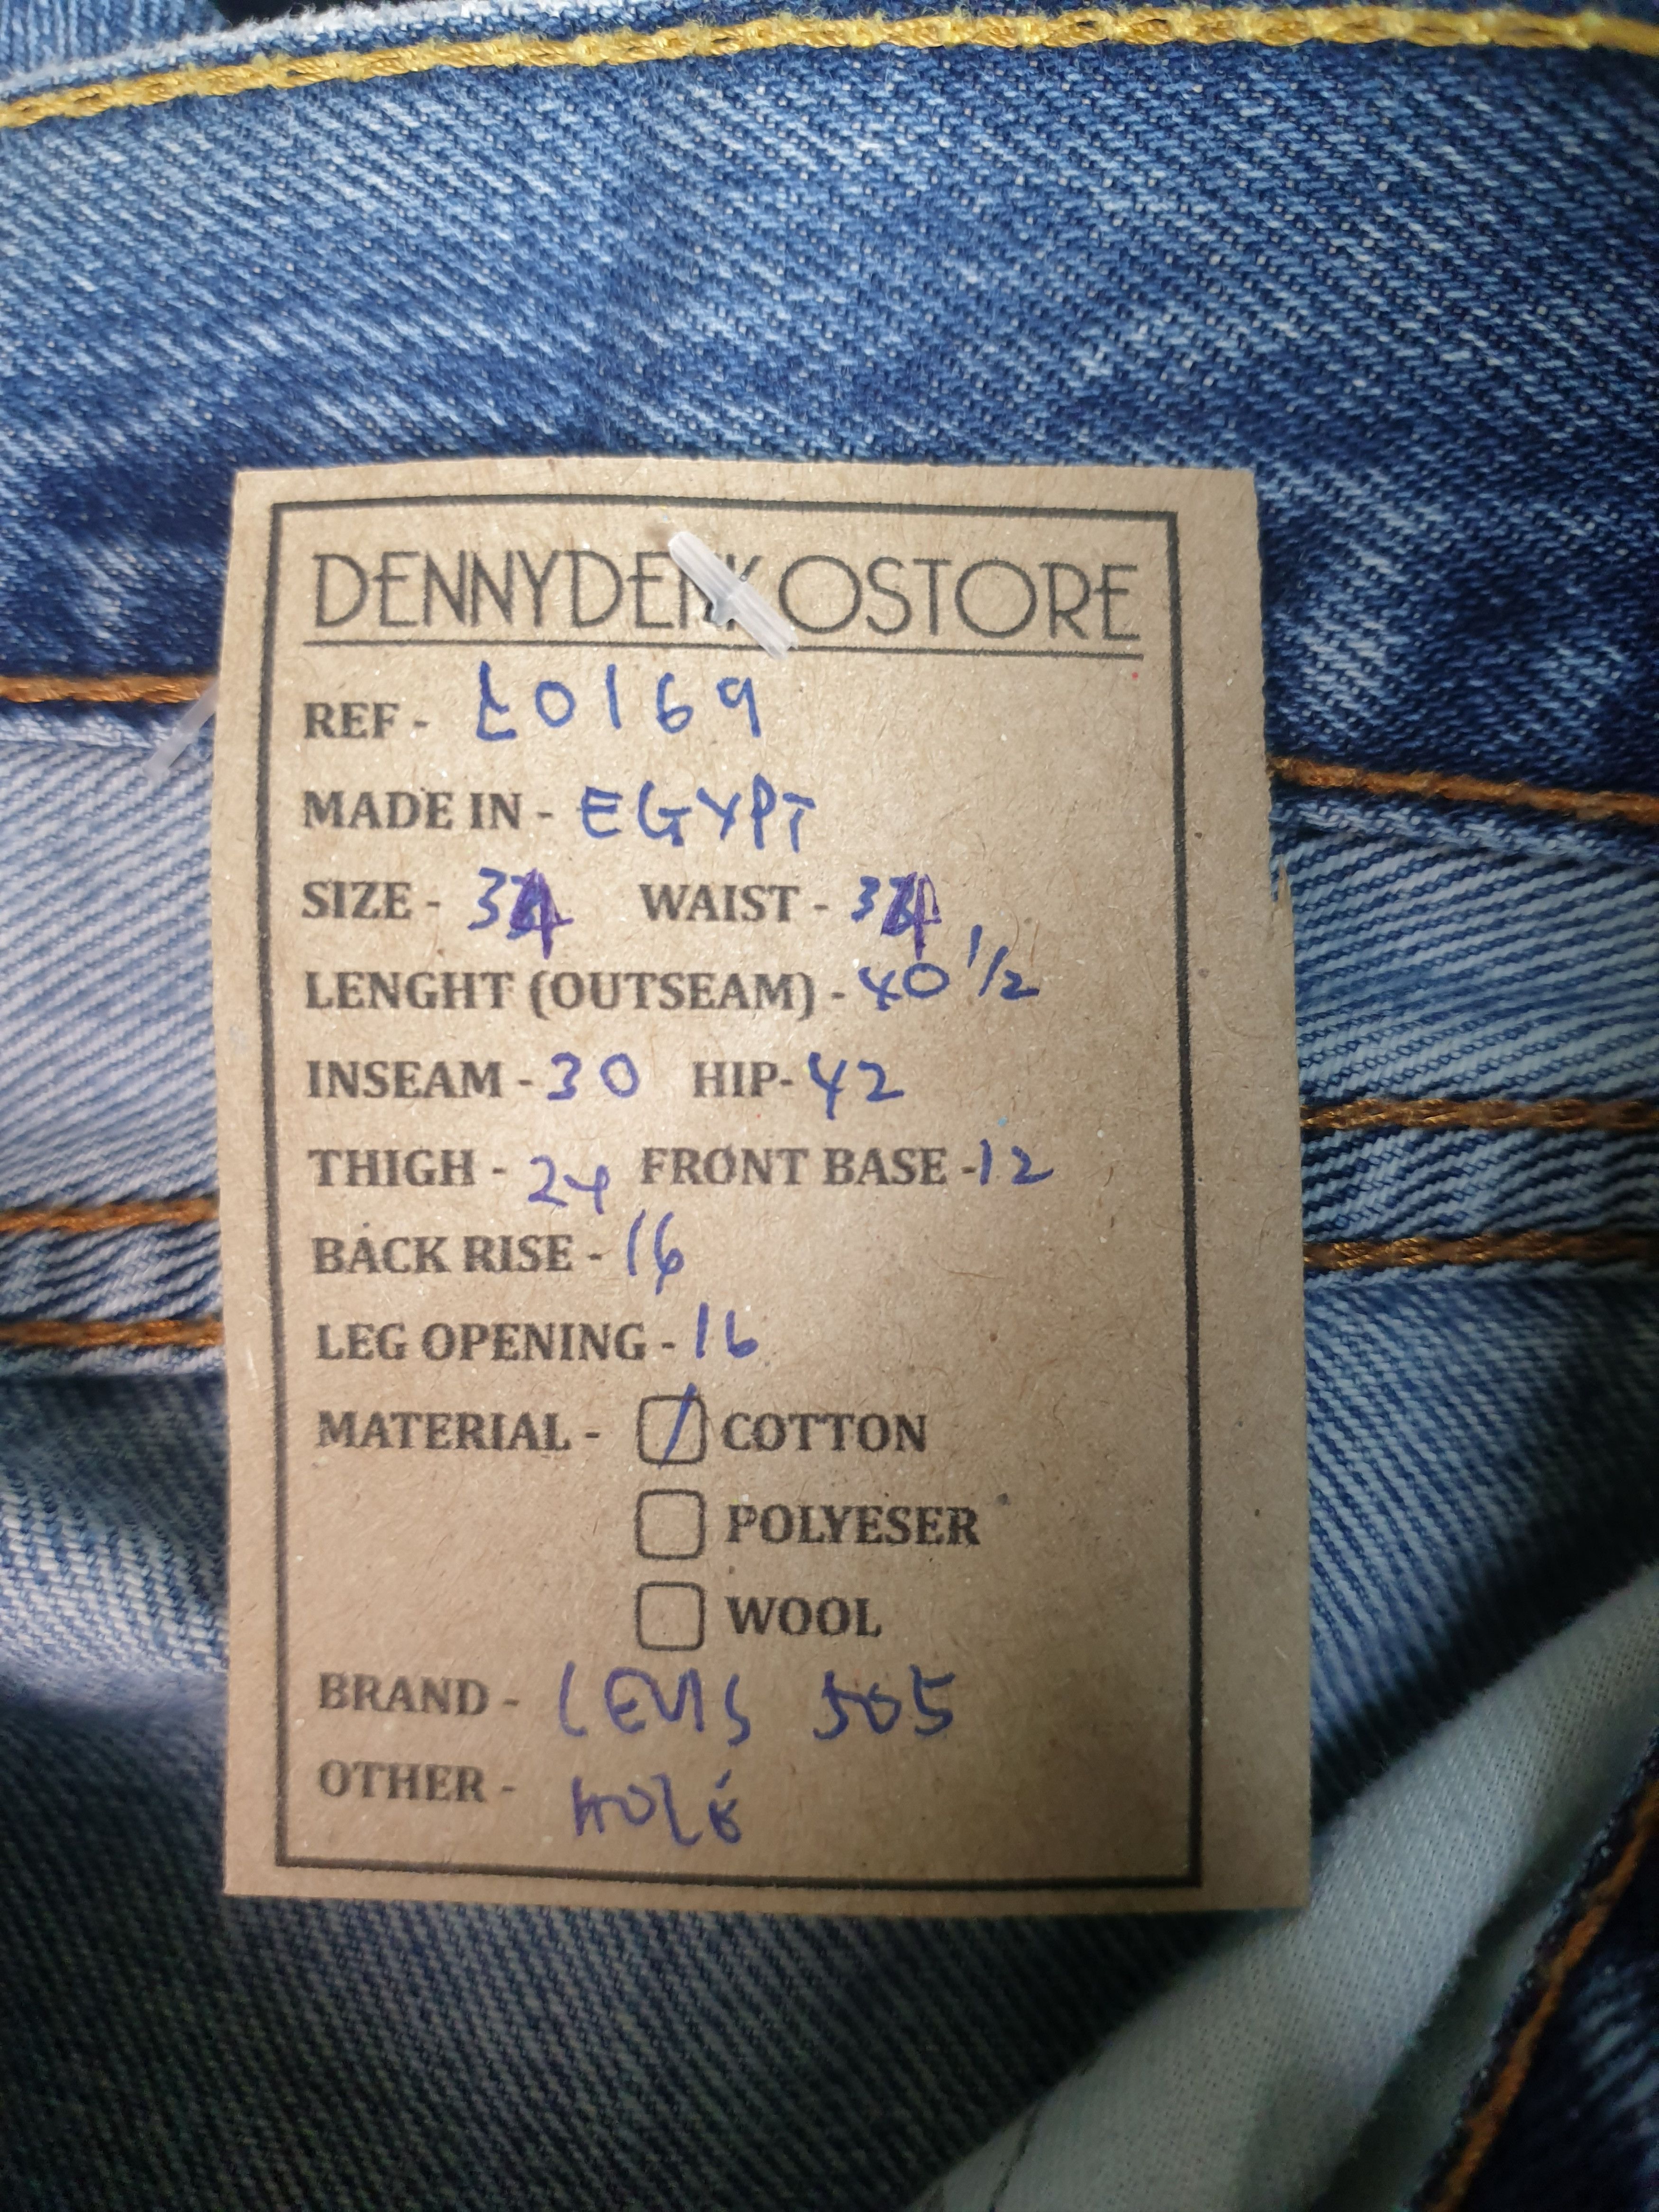 DENNYDENKOSTORE
REF - L0169
MADE IN - EGYPT
SIZE - 34 WAIST - 34
LENGHT (OUTSEAM) - 40 1/2
INSEAM - 30 HIP- 42
THIGH - 24 FRONT BASE -12
BACK RISE - 16
LEG OPENING - 16
MATERIAL - COTTON
POLYESER
WOOL
BRAND - LEVIS 505
OTHER - HOLE